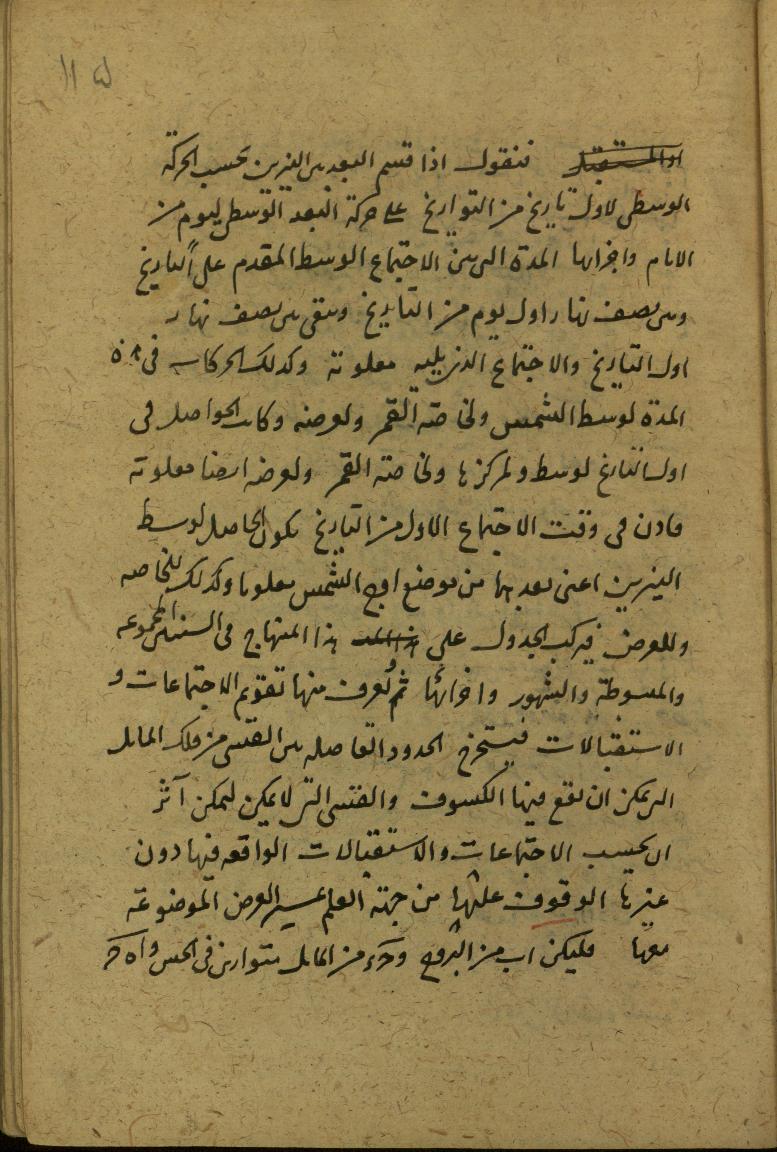 ١١٥
او المستقبل فنقول اذا قسم البعد بين النيرين بحسب الحركة
الوسطى لاول تاريخ من التواريخ على حركة البعد الوسطى ليوم من
الايام واجزائها المدة التى بين الاجتماع الوسط المقدم على التاريخ
وبين نصف نهار اول يوم من التاريخ وبقى بين نصف نهار
اول التاريخ والاجتماع الذى يليه معلومة وكذلك الحركات فى هذه
المدة لوسط الشمس ولخاصة القمر ولعرضه وكانت الحواصل فى
اول التاريخ لوسط ولمركزها ولخاصة القمر ولعرضه ايضا معلومة
فاذن فى وقت الاجتماع الاول من التاريخ يكون الحاصل لوسط
النيرين اعنى بعديهما من موضع اوج الشمس معلوما وكذلك للخاصه
وللعرض فيركب الجدول على هذا المنهاج فى السنين المجموعه
والمبسوطة والشهور واجزائها ثم تعرف منها تقويم الاجتماعات و
الاستقبالات فيستخرج الحدود الفاصله بين القسى من فلك المايل
التى يمكن ان يقع فيها الكسوف والقسى التى لا يمكن ليمكن آثر
ان يحسب الاجتماعات والاستقبالات الواقعه فيها دون
غيرها الوقوف عليها من جهة العلم العرض الموضوعة
معها فليكن اب من البروج وحء من المايل متوازيين فى الحس و اه حر